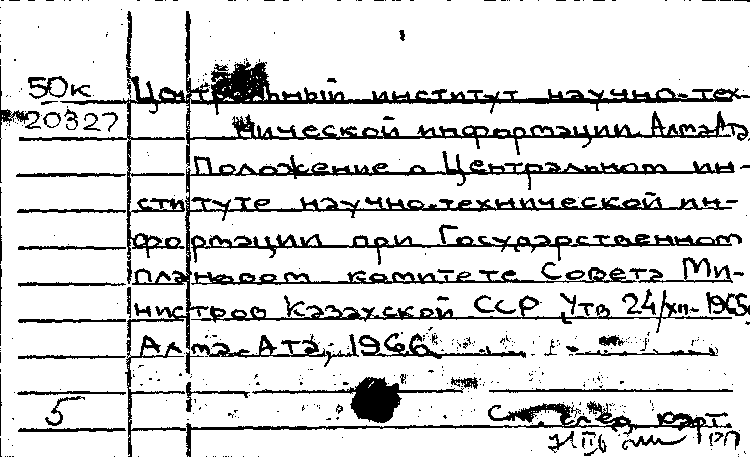 50к Центральный институт научно-тех-
20327 нической информации. Алма-Ата
Положение о Центральном ин-
ституте научно-технической ин-
формации при Государственном
плановом комитете Совета Ми-
нистров Казахской ССР. Утв. 24/XII-1965г.
Алма-Ата, 1966.
5 См. след. карт.